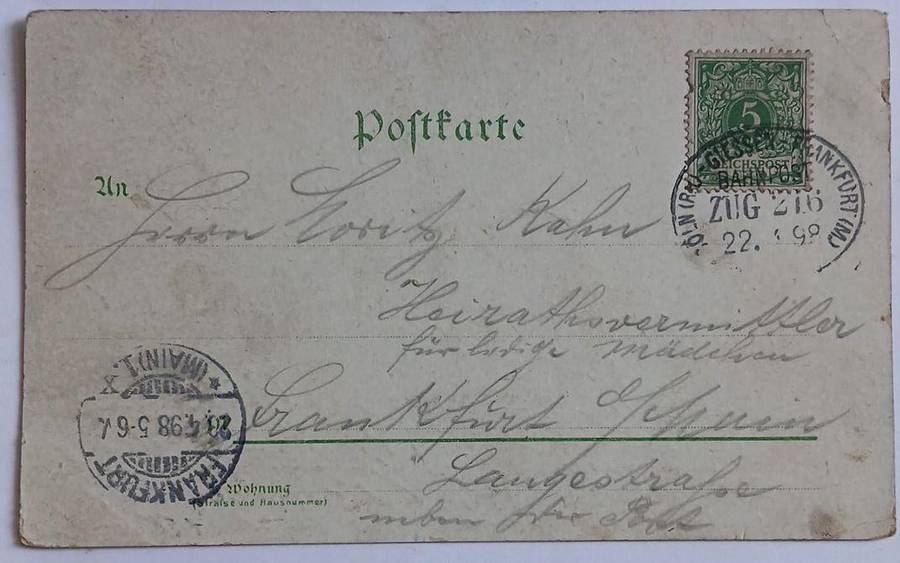 Postkarte
5
REICHSPOST
CÖLN (RH.)-GIESSEN-FRANKFURT (M.)
BAHNPOST
ZUG 216
22. 98
An
Herrn Moritz Kahn
Heirathsvermittler
für ledige Mädchen
Frankfurt a/Main
Langestraße
neben der Post
Wohnung
(Strafse und Hausnummer)
FRANKFURT
4.98 5-6
* (MAIN) 1. *